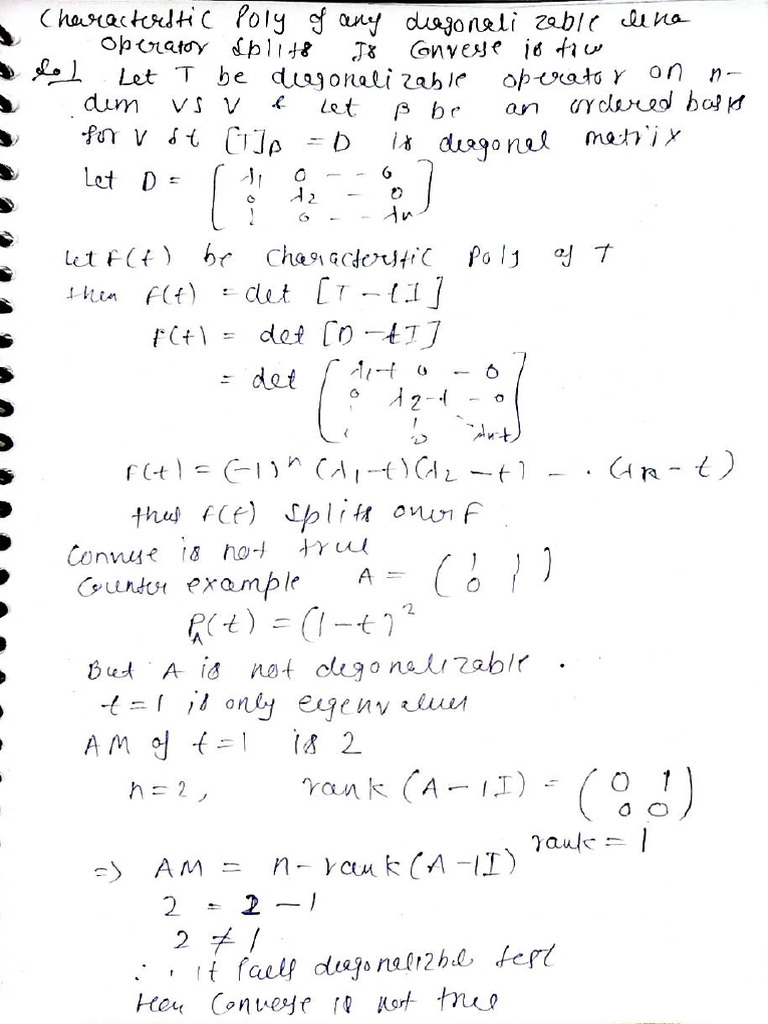 Characterstic Poly of any diagonalizable lina
Operator splits Is Converse is true
Sol Let T be diagonalizable operator on n-
dim VS V & Let β be an ordered basis
for V st [T]β = D is diagonal matrix
Let D = [ λ1 0 - - 0
0 λ2 - 0
¦ 0 - - λn ]
Let F(t) be Characterstic Poly of T
then f(t) = det [T - tI]
F(t) = det [D - tI]
= det [ λ1-t 0 - 0
0 λ2-t - 0
¦ 0 λn-t ]
F(t) = (-1)ⁿ (λ1-t)(λ2-t) - . (λn-t)
thus f(t) splits over F
Converse is not true
Counter example A = ( 1 1
0 1 )
P_A(t) = (1-t)²
But A is not diagonalizable .
t=1 is only eigenvalues
AM of t=1 is 2
n=2, rank (A-1I) = ( 0 1
0 0 )
rank = 1
=> AM = n-rank(A-1I)
2 = 2 - 1
2 ≠ 1
∴ it fails diagonalizbl test
Hen Converse is not true